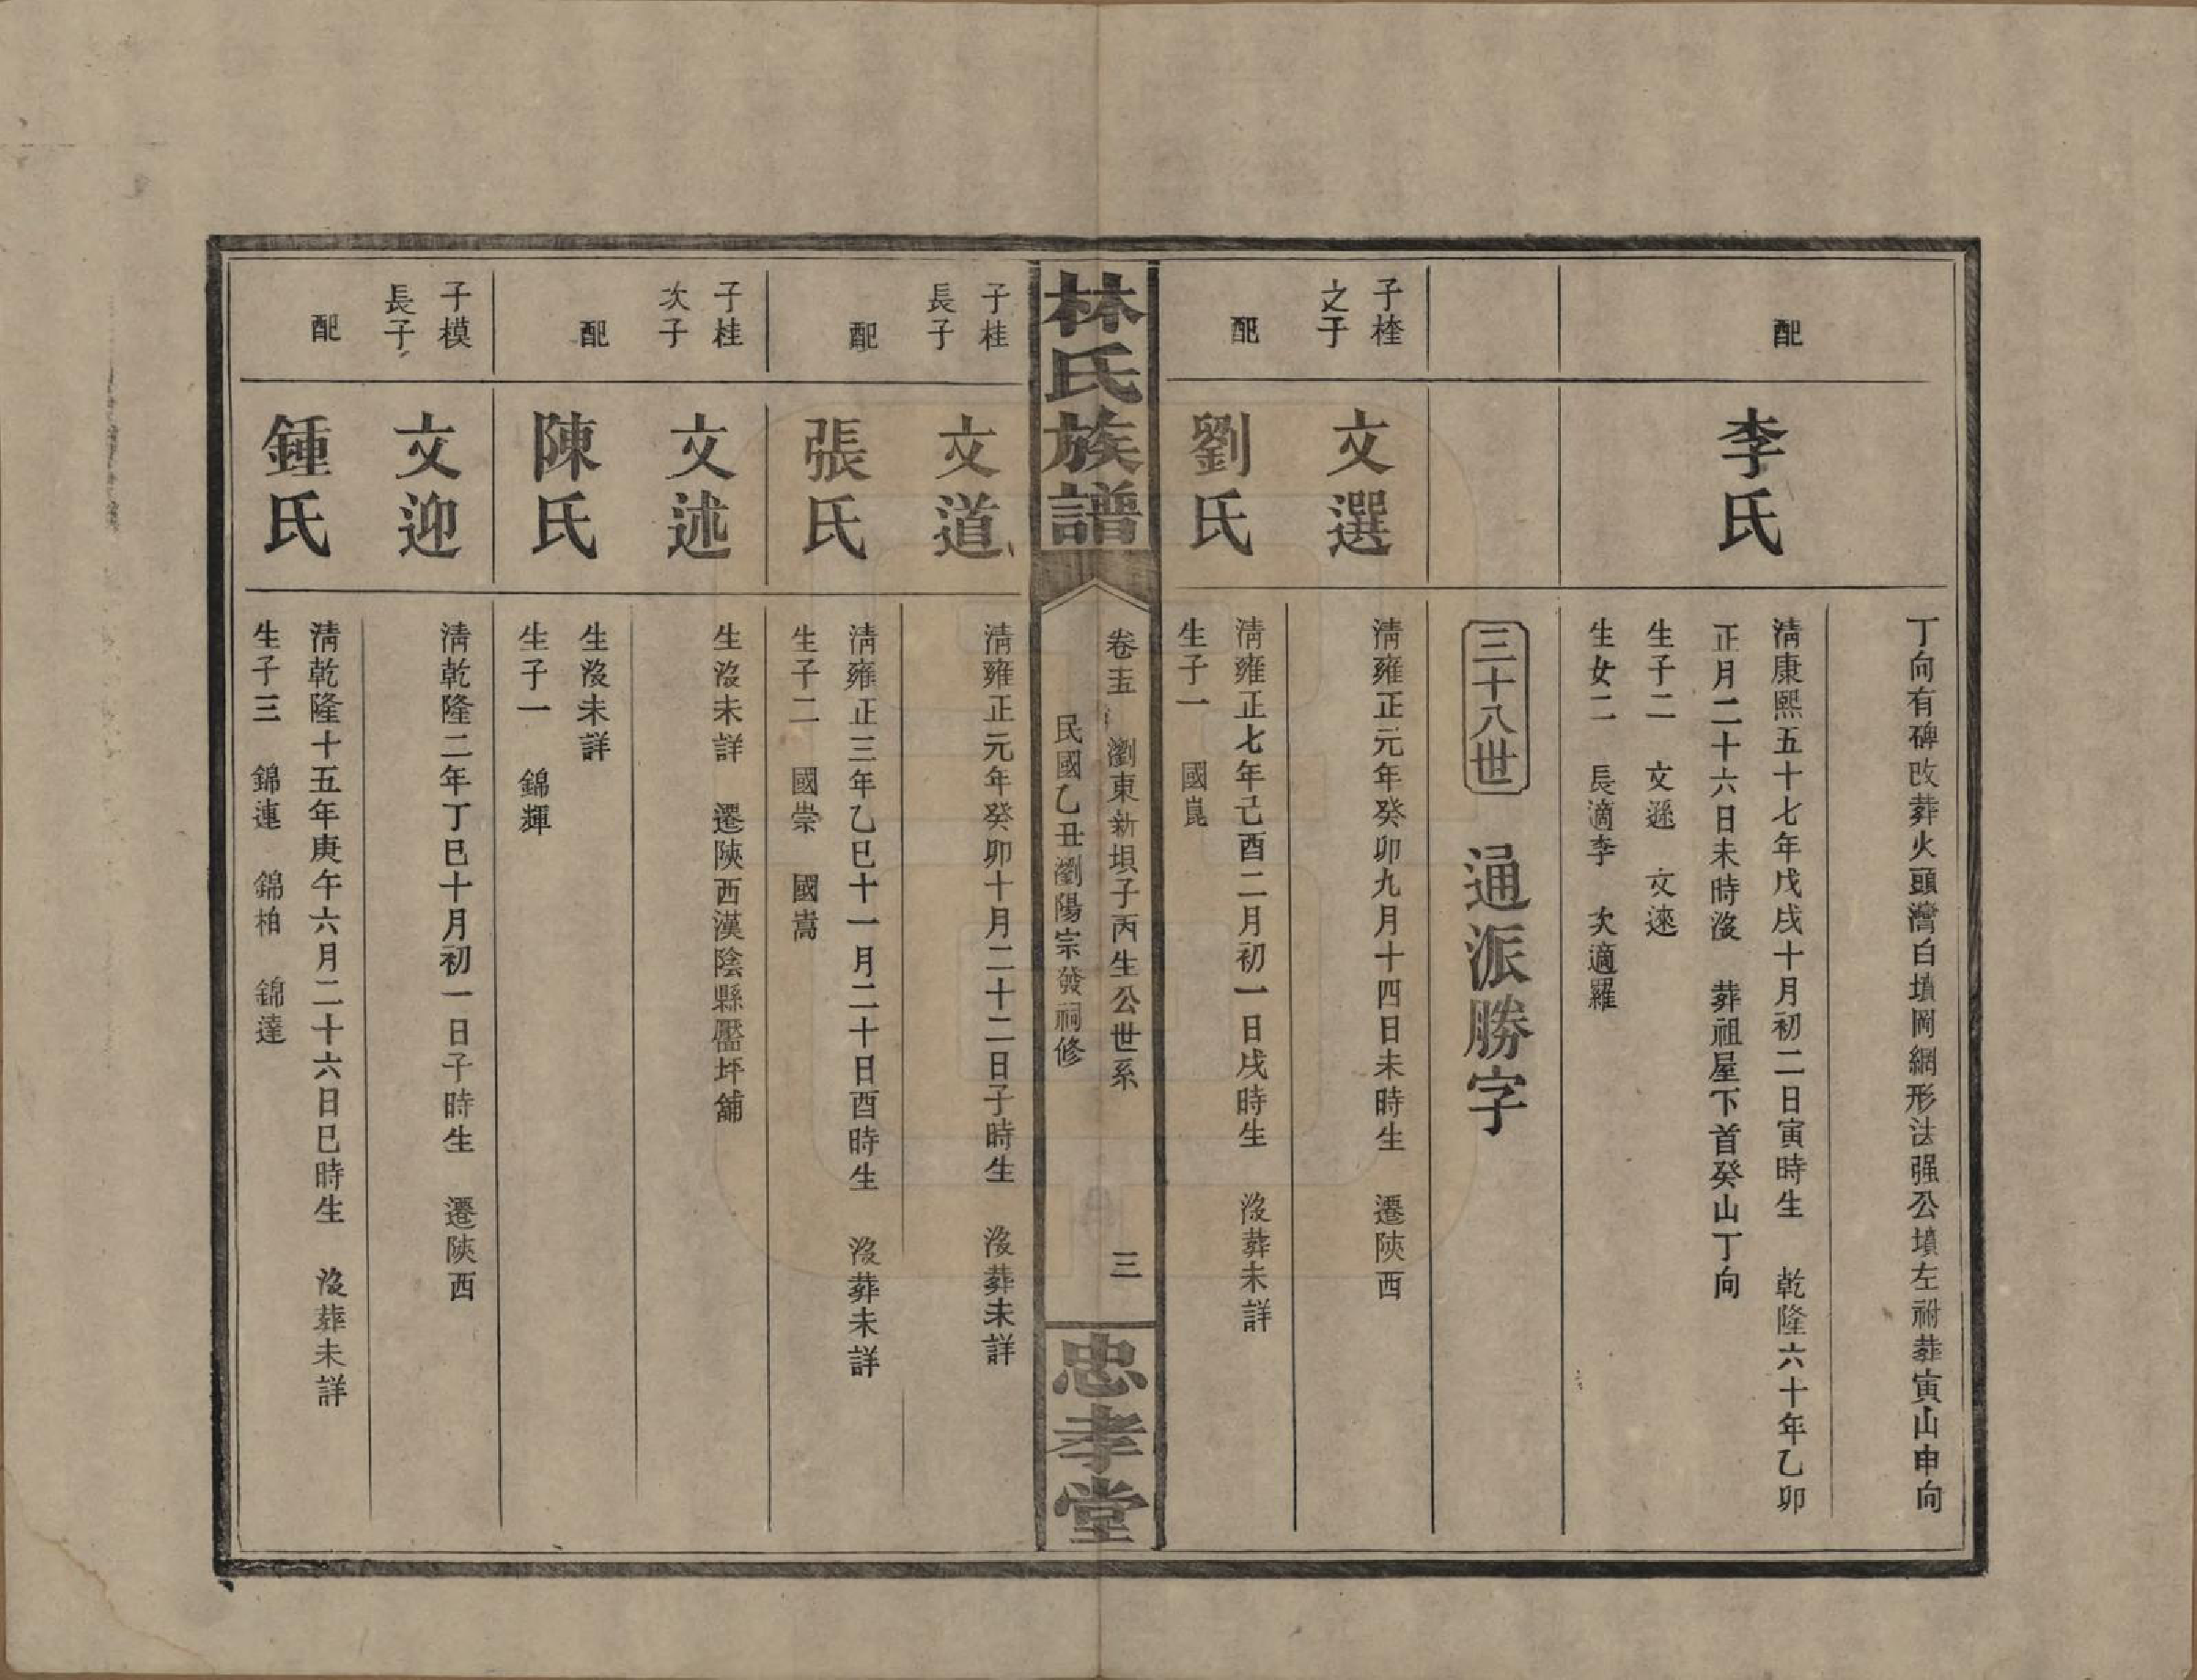 丁向有碑改葬火頭灣白墳岡網形法强公墳左祔葬寅山申向
配
李氏
清康熙五十七年戊戌十月初二日寅時生　乾隆六十年乙卯
正月二十六日未時沒　葬祖屋下首癸山丁向
生子二　文遜　文速
生女二　長適李　次適羅
三十八世　通派勝字
子楏
之子
文選
清雍正元年癸卯九月十四日未時生　遷陝西
配
劉氏
清雍正七年己酉二月初一日戌時生　沒葬未詳
生子一　國崑
林氏族譜
卷十五　瀏東新垻子丙生公世系　三
民國乙丑瀏陽宗發祠修
忠孝堂
子桂
長子
文道
清雍正元年癸卯十月二十二日子時生　沒葬未詳
配
張氏
清雍正三年乙巳十一月二十日酉時生　沒葬未詳
生子二　國崇　國嵩
子桂
次子
文述
生沒未詳　遷陝西漢陰縣壓坪舖
配
陳氏
生沒未詳
生子一　錦輝
子模
長子
文迎
清乾隆二年丁巳十月初一日子時生　遷陝西
配
鍾氏
清乾隆十五年庚午六月二十六日巳時生　沒葬未詳
生子三　錦連　錦柏　錦達